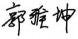 郭雅坤